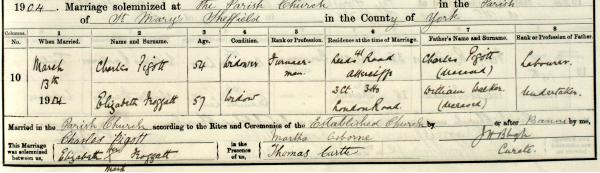 1904. Marriage solemnized at The Parish Church in the Parish
of St Mary's Sheffield in the County of York
Columns. 1 2 3 4 5 6 7 8
No. When Married. Name and Surname. Age. Condition. Rank or Profession. Residence at the time of Marriage. Father's Name and Surname. Rank or Profession of Father.
10 March 13th 1904 Charles Pigott 54 Widower Furnaceman. Leeds Road Attercliffe Charles Pigott (deceased) Labourer.
Elizabeth Froggatt 57 Widow 3 Ct. 340 London Road. William (deceased) Undertaker.
Married in the Parish Church according to the Rites and Ceremonies of the Established Church by or after Banns by me,
This Marriage was solemnized between us, Charles Pigott in the Presence of us, Martha Osborne
Elizabeth her X Froggatt Thomas Curate.
Mark